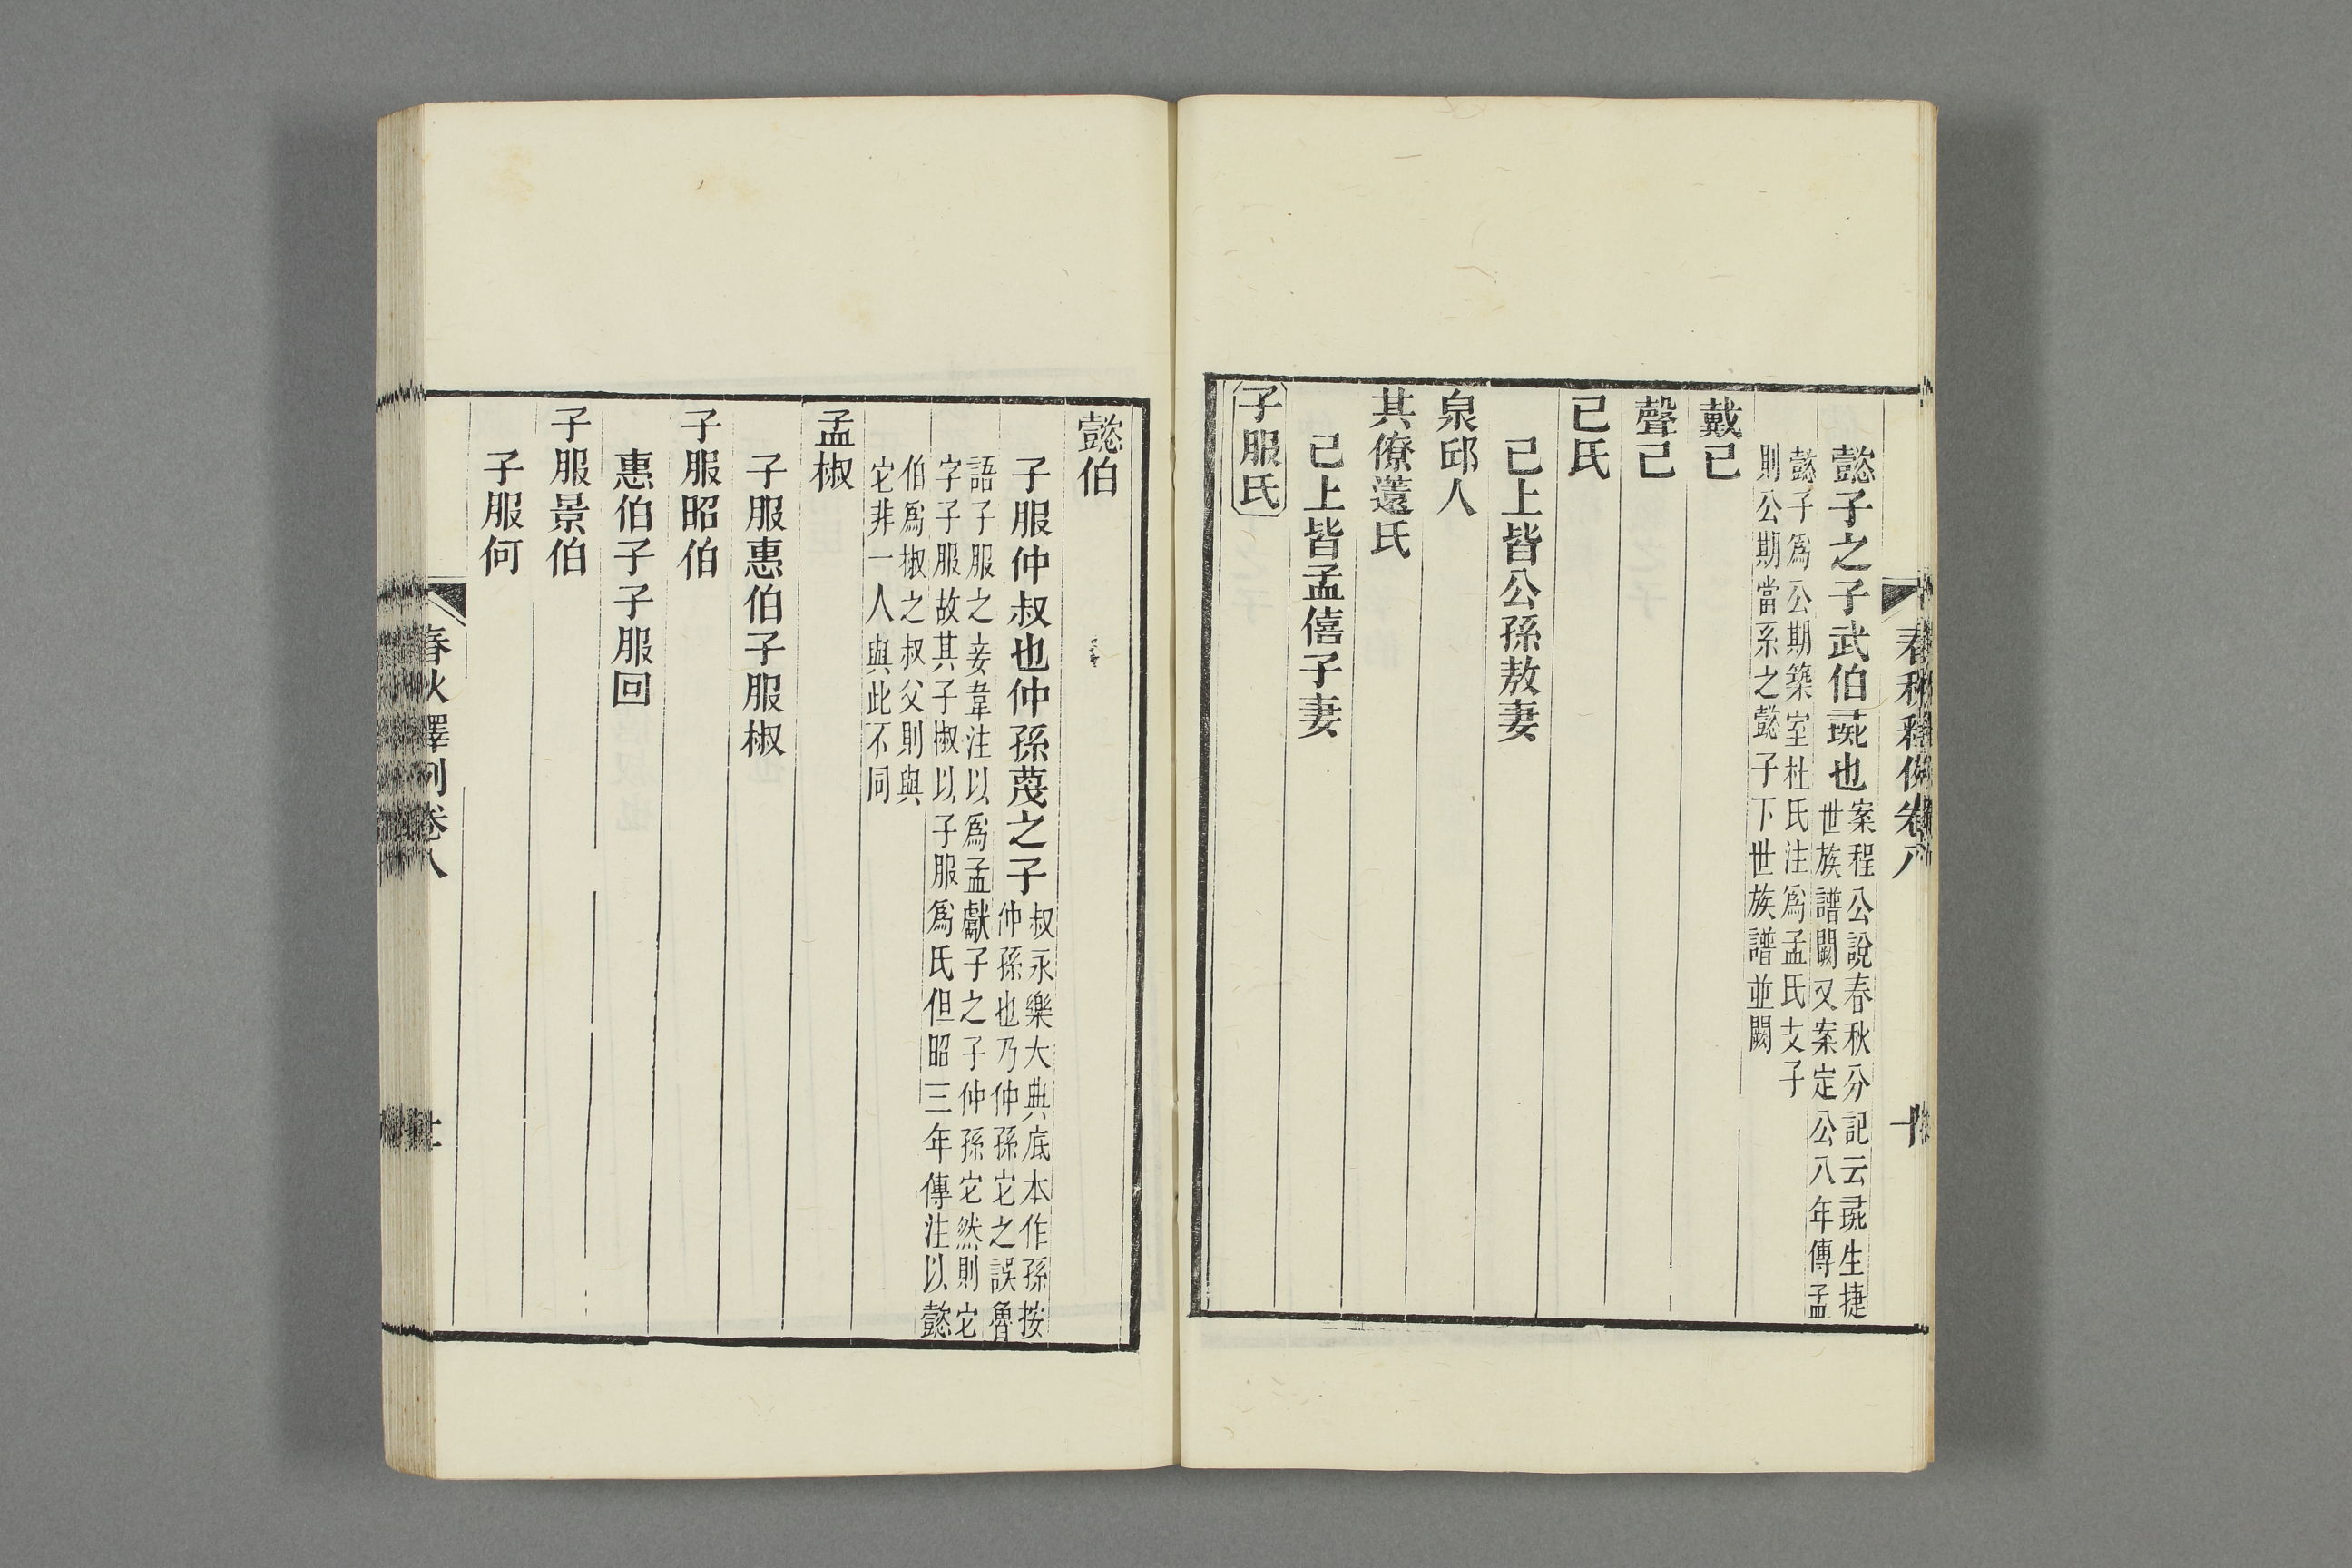 春秋釋例卷八
懿子之子武伯彘也
案程公說春秋分記云彘生捷
世族譜闕又案定公八年傳孟
懿子爲公期築室杜氏注爲孟氏支子
則公期當系之懿子下世族譜並闕
戴己
聲己
己氏
已上皆公孫敖妻
泉邱人
其僚薳氏
已上皆孟僖子妻
子服氏
懿伯
子服仲叔也仲孫蔑之子
叔永樂大典底本作孫按
仲孫也乃仲孫它之誤魯
語子服之妾韋注以爲孟獻子之子仲孫它然則它
字子服故其子椒以子服爲氏但昭三年傳注以懿
伯爲椒之叔父則與
它非一人與此不同
孟椒
子服惠伯子服椒
子服昭伯
惠伯子子服回
子服景伯
子服何
春秋釋例卷八